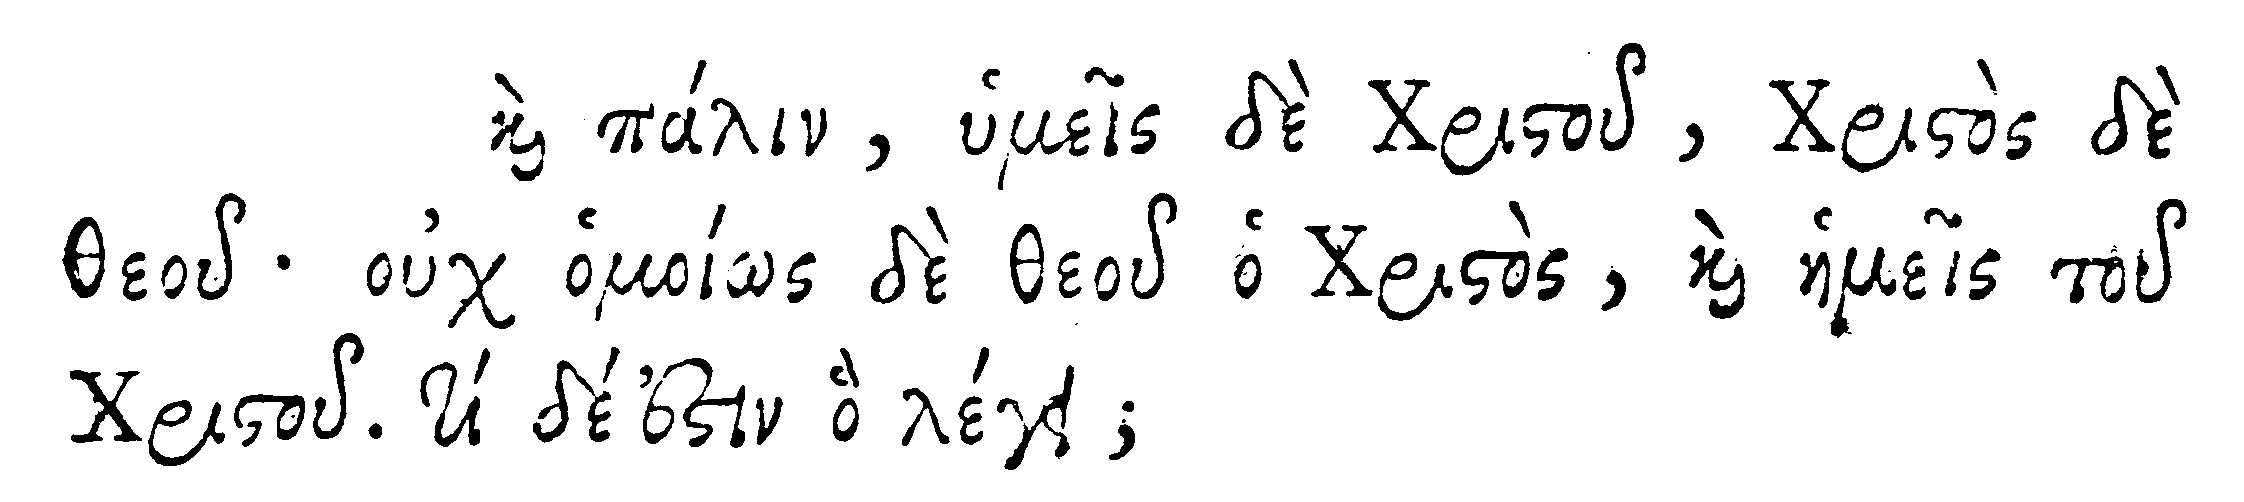 καὶ πάλιν, ὑμεῖς δὲ Χριστοῦ, Χριστὸς δὲ
θεοῦ· οὐχ ὁμοίως δὲ θεοῦ ὁ Χριστὸς, καὶ ἡμεῖς τοῦ
Χριστοῦ. τί δέ ἐστιν ὃ λέγει;